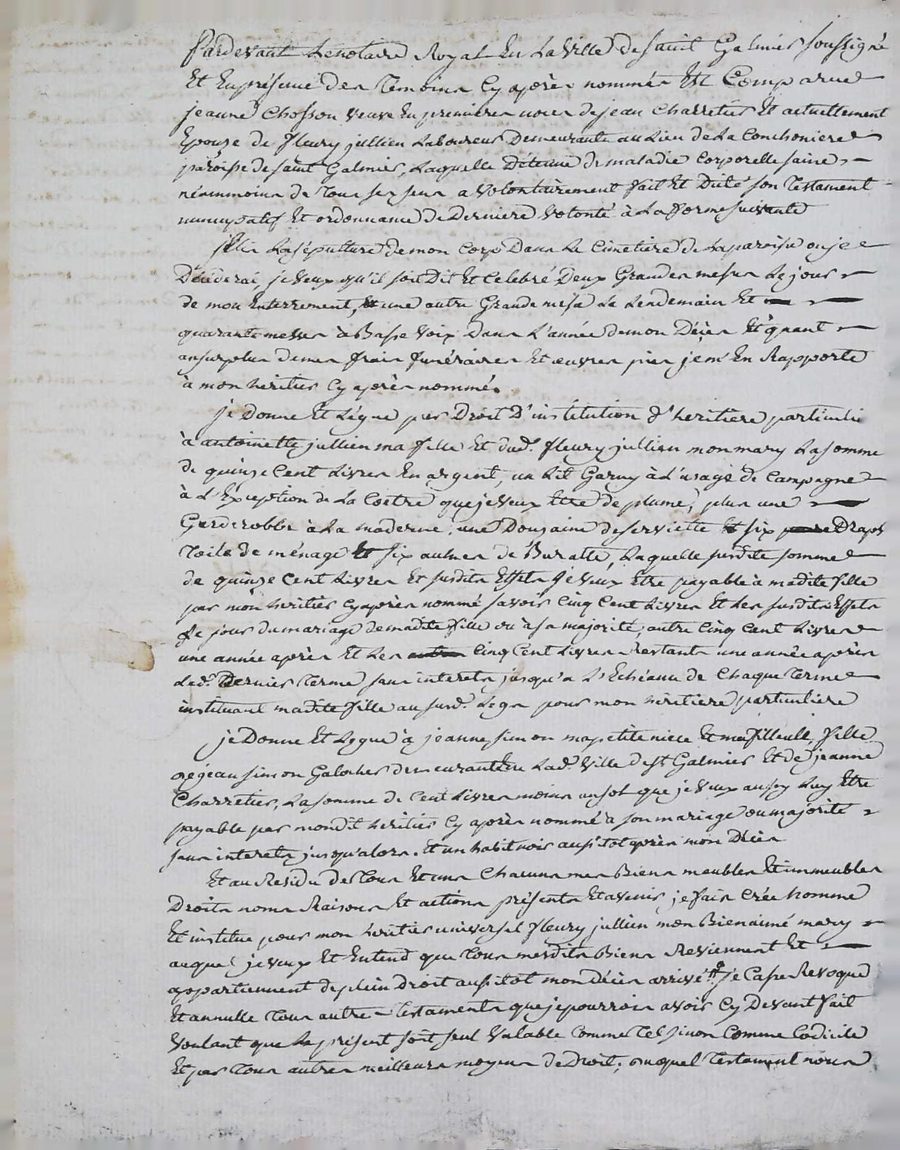 Pardevant Lenotaire Royal En La Ville de saint Galmier soussigné
Et En présence des temoins Cy après nommés Est Comparue
jeanne Chosson veuve En premieres noces de jean Charretier Et actuellement
Epouze de fleury jullien Laboureur Demeurante au Lieu de La Conchoniere
paroisse de saint Galmier, Laquelle Détenue de maladie Corporelle saine
néammoins de Tous ses sens a volontairement fait Et Dicté son Testament
nuncupatif Et ordonnance de Derniere volonté à La forme suivante
Elis La sépulture de mon Corps Dans Le Cimetiere de La paroisse ou je
Décéderai je veux qu'il soit Dit Et Celebré Deux Grandes messes Le jour
de mon Enterrement, une autre Grande messe Le Lendemain Et
quarante messes à Basse voix Dans L'année de mon Décès Et quant
au surplus de mes frais funéraires Et œuvres pies je m'En Rapporte
à mon héritier Cy après nommé.
je Donne Et Légue par Droit D'institution d'héritiere particuliere
à antoinette jullien ma fille Et dud. fleury jullien mon mary La somme
de quinze Cent Livres En argent, un Lit Garny à L'usage de Campagne
à L'Exception de La Coetre que je veux Etre de plume, plus une
Garderobbe à La moderne, une Douzaine de serviette Et six Draps
Toile de ménage Et six aulnes de Buratte, Laquelle susdite somme
de quinze Cent Livres Et susdits Effets je veux Etre payable à madite fille
par mon héritier Cy après nommé savoir Cinq Cent Livres Et Les susdits Effets
Le jour du mariage de madite fille ou à sa majorité, autre Cinq Cent Livres
une année après Et Les Cinq Cent Livres Restants une année après
Led. Dernier Terme sans interets jusqu'a L'Echéance de Chaque Terme
instituant madite fille au susd. Legs pour mon héritiere particuliere
je Donne Et Legue à jeanne simon ma petite niece Et ma filleulle, fille
de jean simon Galocher demeurant En Lad. ville de st Galmier Et de jeanne
Charretier, La somme de Cent Livres moins un sol que je veux aussy Luy Etre
payable par mondit héritier Cy après nommé à son mariage ou majorité
sans interets jusqu'alors. Et un habit noir aussitot après mon Décès
Et au Résidu de Tous Et uns Chacuns mes Biens meubles Et immeubles
Droits noms Raisons Et actions présents Et avenir, je fais Crée nomme
Et institue pour mon héritier universel fleury jullien mon Bienaimé mary
auquel je veux Et Entend que Tous mesdits Biens Reviennent Et
appartiennent de plein Droit aussitot mon Décès arrivé je Casse Revoque
Et annulle Tous autres Testaments que je pourrois avoir Cy Devant fait
Voulant que Le présent soit seul valable Comme Tel sinon Comme Codicile
Et par Tous autres meilleurs moyens de Droit; auquel Testament nous